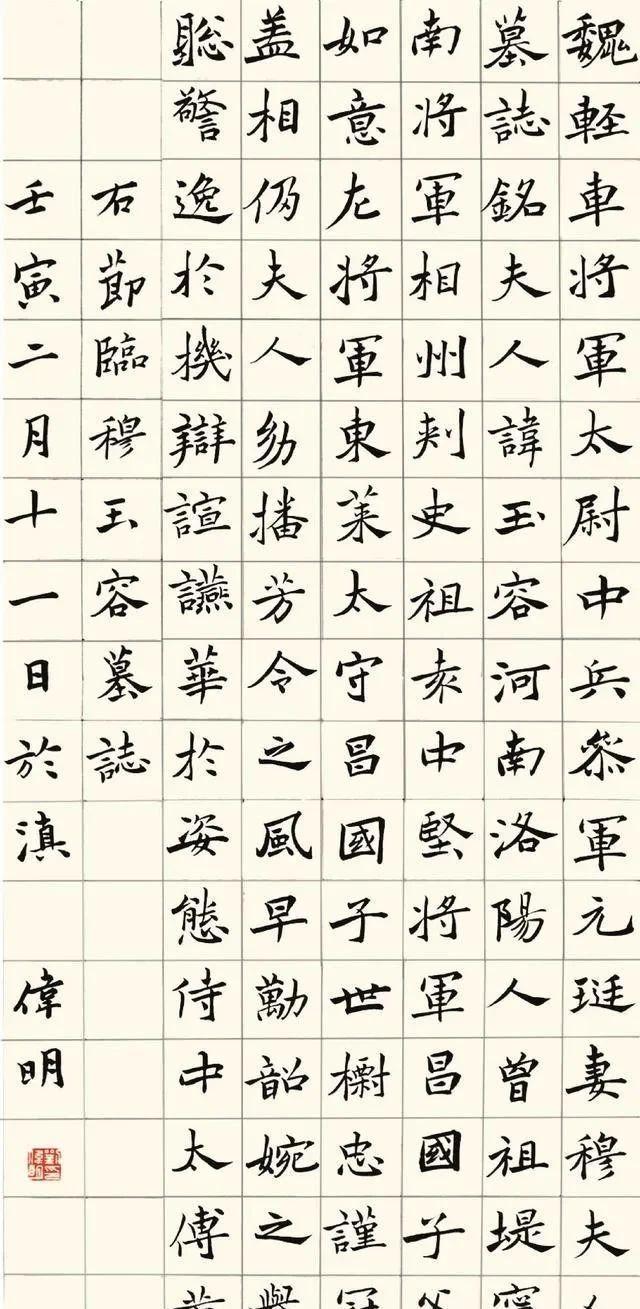 魏輕車將軍太尉中兵叅軍元珽妻穆夫人
墓誌銘夫人諱玉容河南洛陽人曾祖堤寧
南將軍相州刾史祖袁中堅將軍昌國子父
如意左將軍東萊太守昌國子世樹忠謹冠
盖相仍夫人幼播芳令之風早勵韶婉之
聡警逸於機辯諠讌華於姿態侍中太傅
右節臨穆玉容墓誌
壬寅二月十一日於滇 偉明